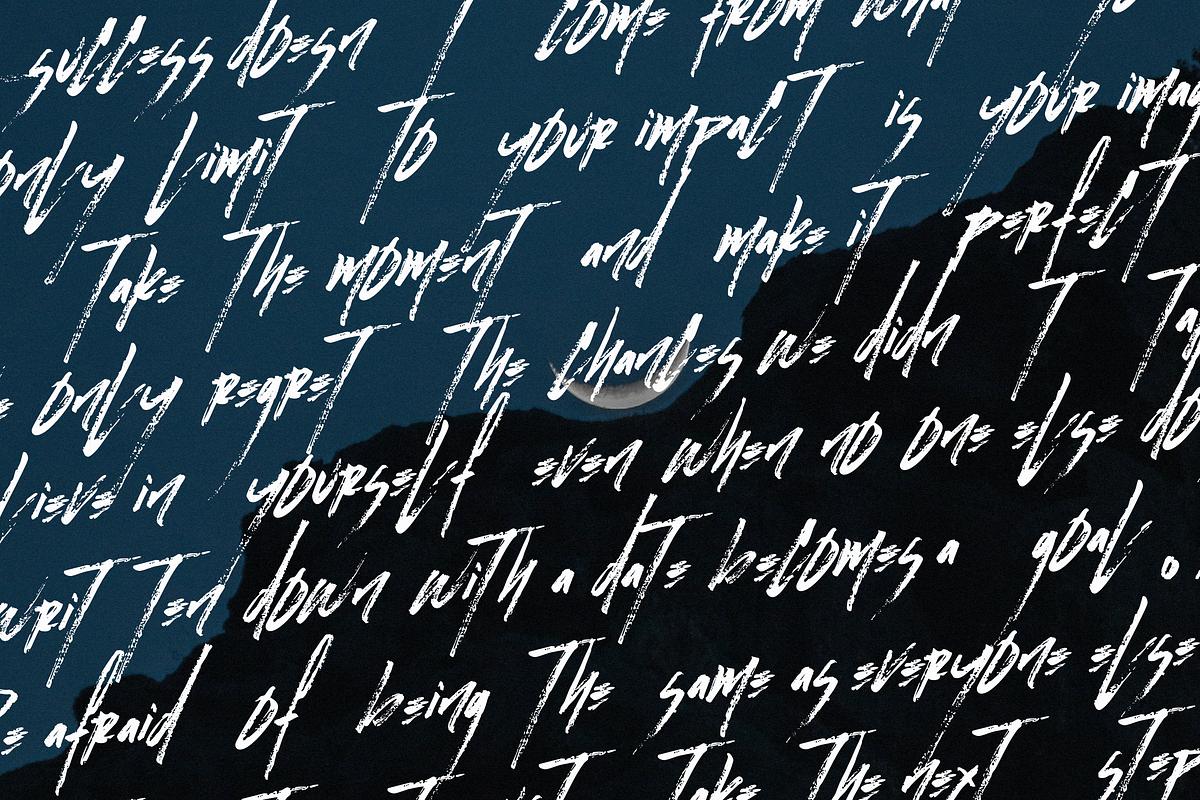 success doesn t come from what
only limit to your impact is your imag
Take The moment and make it perfect
only regret The chances we didn t Ta
lieve in yourself even when no one else do
writ Ten down with a date becomes a goal.
afraid of being The same as everyone else
Take The next step